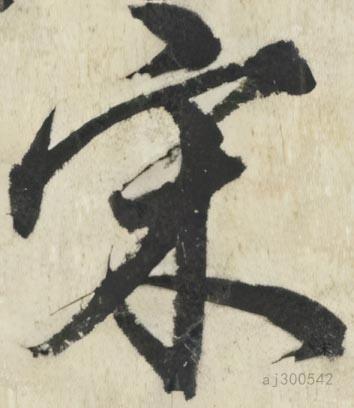 宋
aj300542